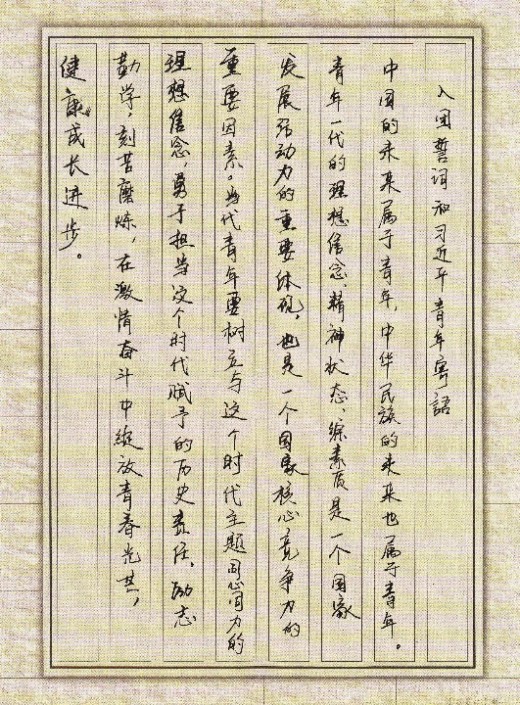 入团誓词和习近平青年寄語
中国的未来属于青年，中华民族的未来也属于青年。
青年一代的理想信念、精神状态、综素质是一个国家
发展活动力的重要体现，也是一个国家核心竞争力的
重要因素。当代青年要树立与这个时代主题同心同力的
理想信念，勇于担当这个时代赋予的历史责任，励志
勤学，刻苦磨炼，在激情奋斗中绽放青春光芒，
健康成长进步。